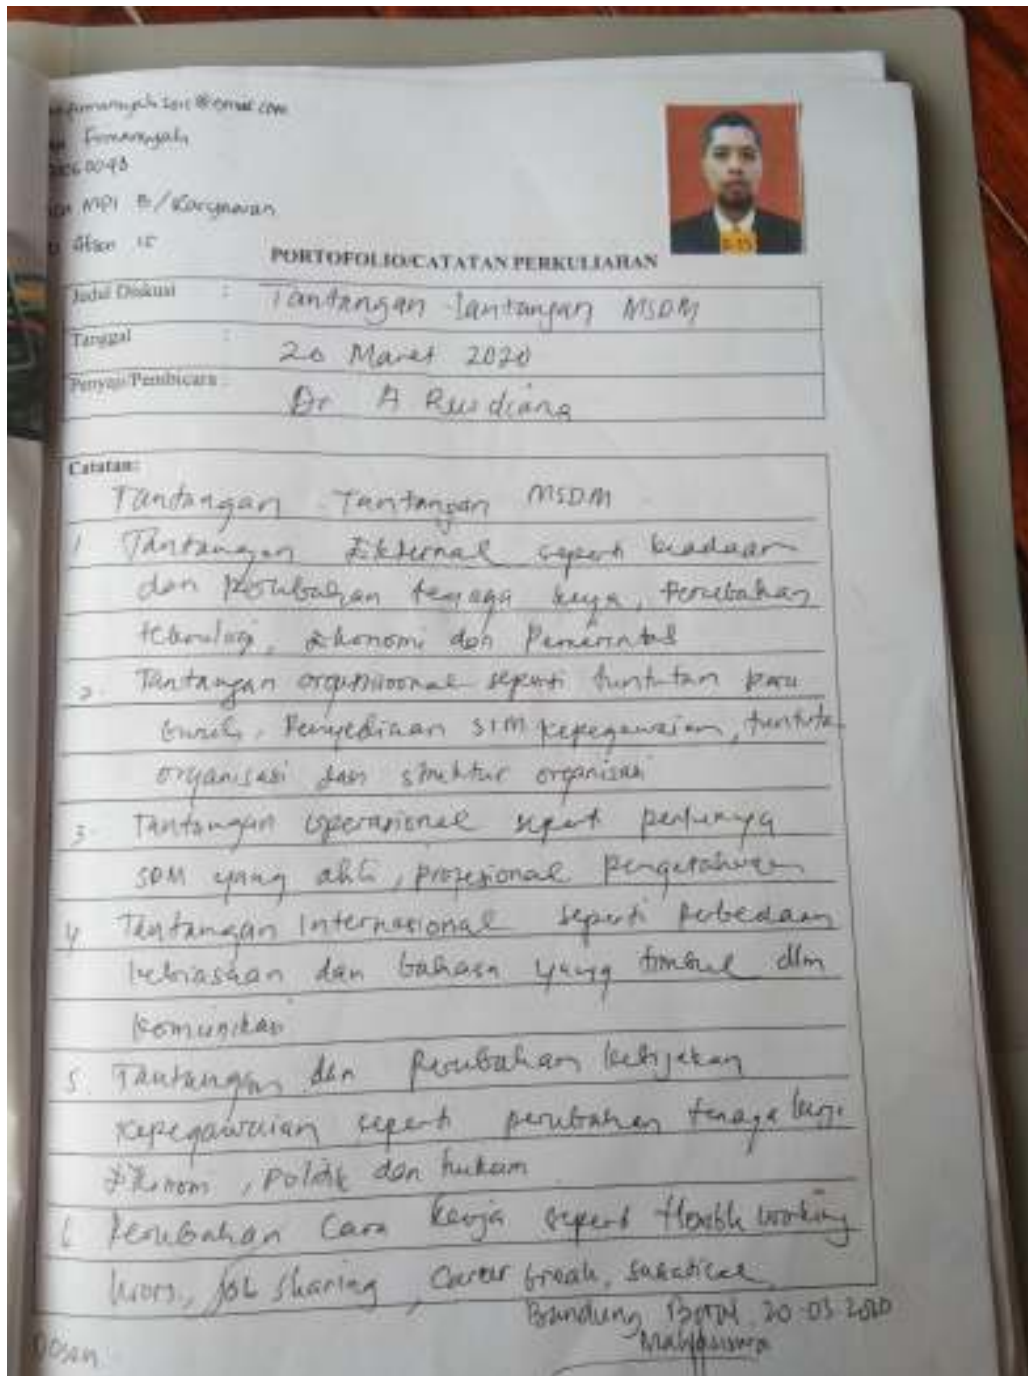 Firmansyah
MPI B / Karyawan
Absen 15
PORTOFOLIO/CATATAN PERKULIAHAN
Judul Diskusi : Tantangan-tantangan MSDM
Tanggal : 20 Maret 2020
Penyaji/Pembicara : Dr A Rusdiana
Catatan:
Tantangan - Tantangan MSDM
1. Tantangan Eksternal seperti keadaan
dan Perubahan tenaga kerja, Perubahan
teknologi, Ekonomi dan Pemerintah
2. Tantangan organisional seperti tuntutan para
buruh, Penyediaan SIM kepegawaian, tuntuta
organisasi dan struktur organisasi
3. Tantangan operasional sepert perlunya
SDM yang ahli, profesional pengetahuan
4 Tantangan Internasional seperti perbedaan
kebiasaan dan bahasa yang timbul dlm
Komunikasi
5. Tantangan dan Perubahan kebijakan
Kepegawaian seperti perubahan tenaga kerja
Ekonom, Politik dan hukum
6 Perubahan Cara kerja seperti flexible working
hours, job sharing, Career break, sabatical
Bandung 20-03-2020
Mahasiswa
Dosen